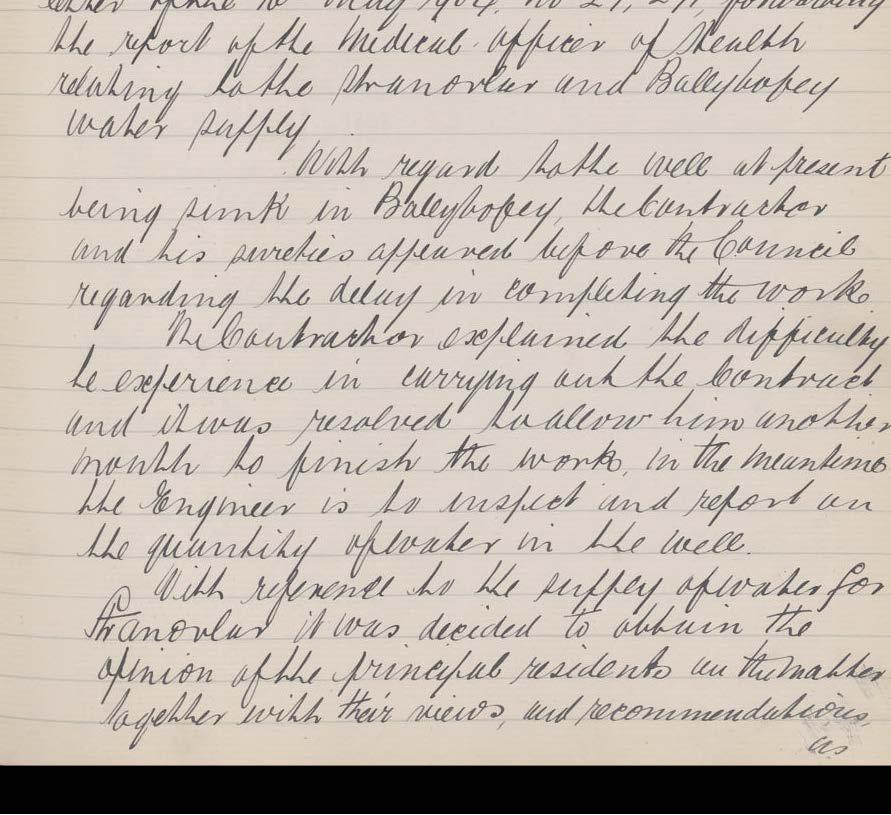 letter of the 10 May 1904, no 27, 271, forwarding
the report of the Medical officer of Health
relating to the Stranorlar and Ballybofey
water supply
With regard to the well at present
being sunk in Ballybofey, the Contractor
and his sureties appeared before the Council
regarding the delay in completing the work
The Contractor explained the difficulty
he experience in carrying out the Contract
and it was resolved to allow him another
month to finish the work, in the meantime
the Engineer is to inspect and report on
the quantity of water in the well.
With reference to the supply of water for
Stranorlar it was decided to obtain the
opinion of the principal residents on the matter
together with their views, and recommendations,
as